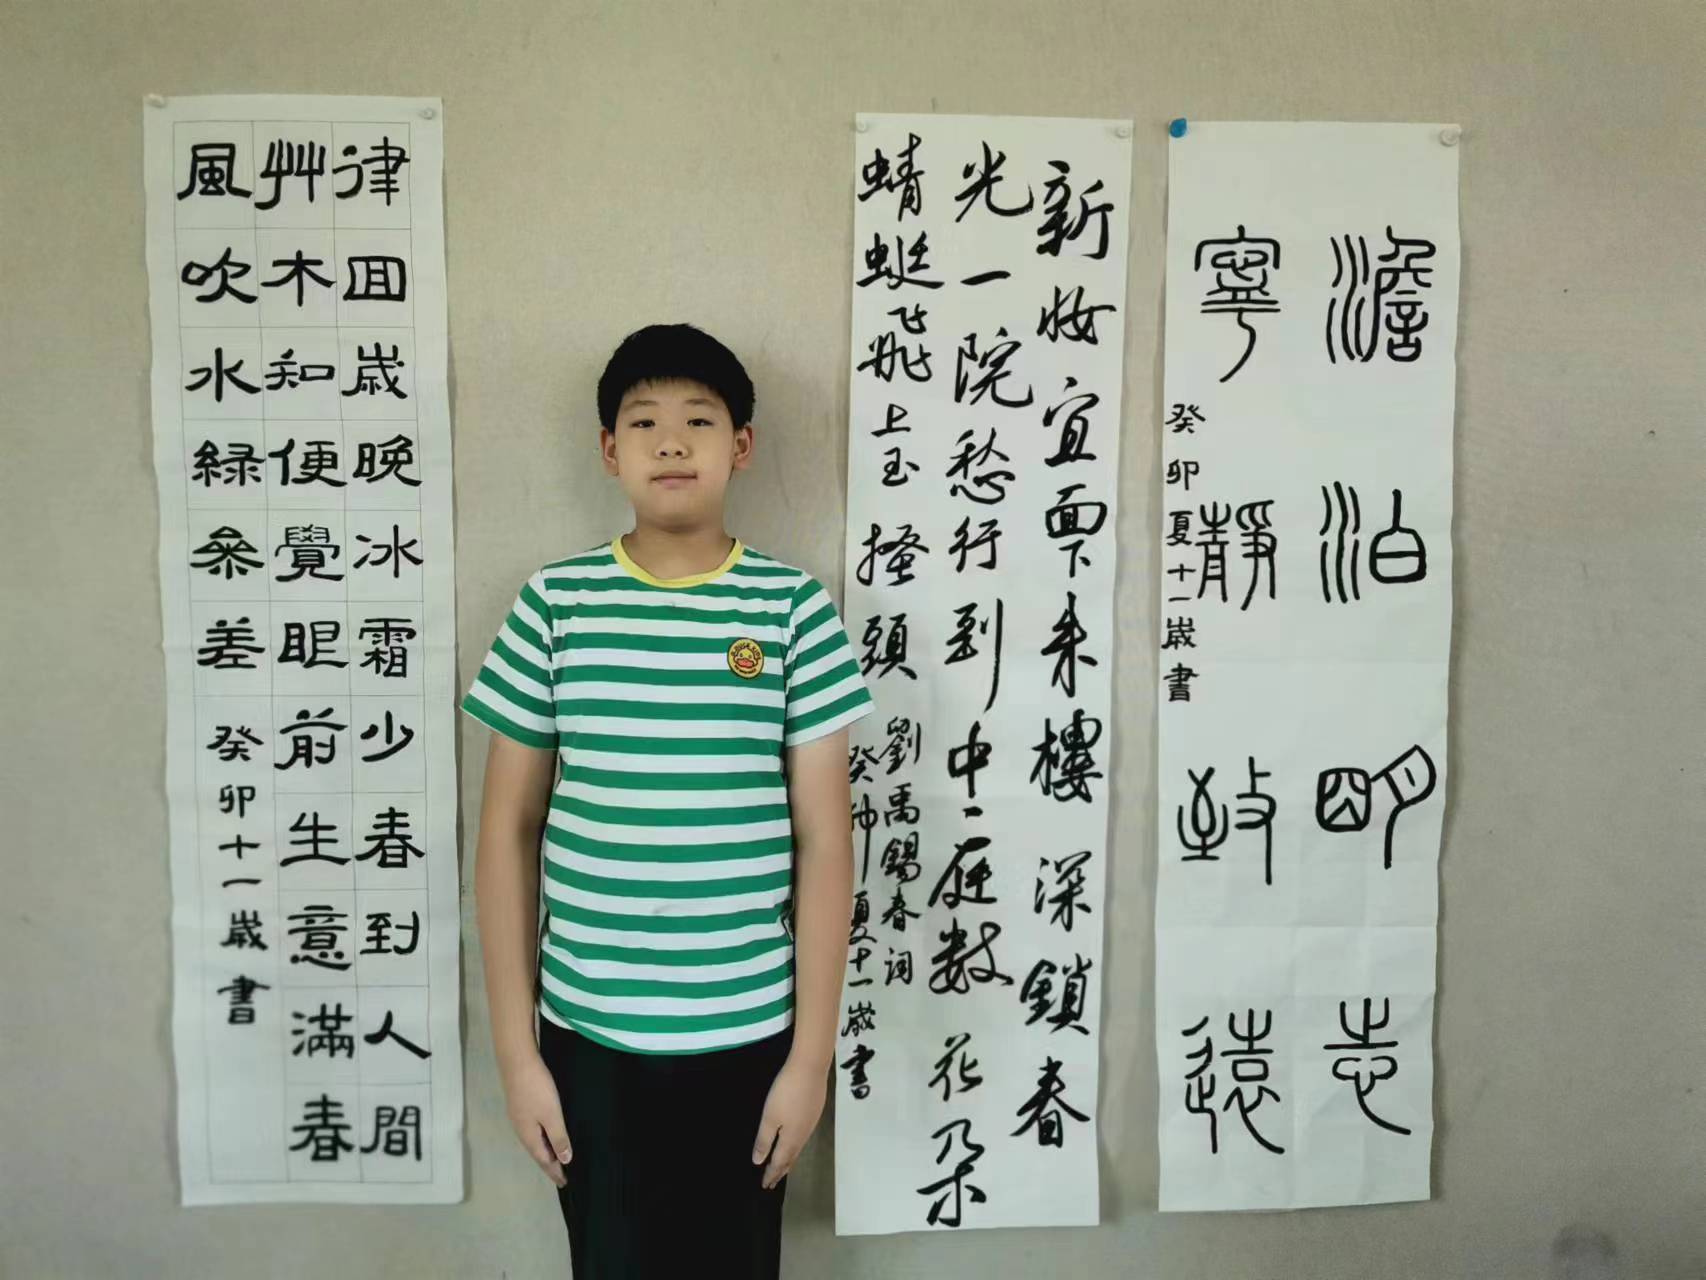 律囬歲晚冰霜少春到人間
艸木知便覺眼前生意滿春
風吹水緑叅差
癸卯十一歲書
新妝宜面下朱樓深鎖春
光一院愁行到中庭數花朵
蜻蜓飛上玉搔頭
劉禹錫春詞
癸卯夏十一歲書
澹泊明志
寧靜致遠
癸卯夏十一歲書